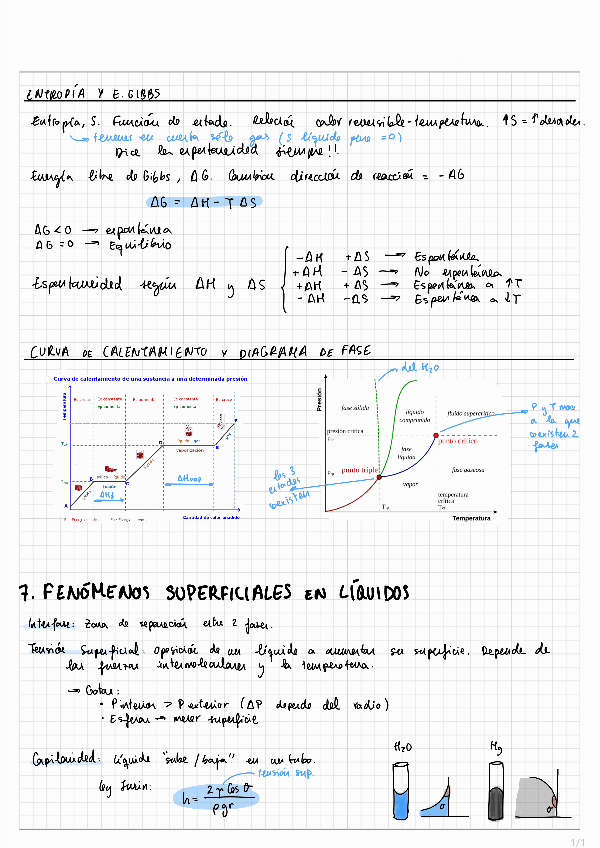 ENTROPÍA Y E. GIBBS
Entropía, S. Función de estado. Relación calor reversible-temperatura. ↑S = ↑desorden.
→ tenener en cuenta sólo gas (S líquido pure =0)
Dice la espontaneidad siempre!!
Energía libre de Gibbs, ΔG. Cambian dirección de reacción = -ΔG
ΔG = ΔH - T ΔS
ΔG < 0 → espontánea
ΔG = 0 → Equilibrio
Espontaneidad según ΔH y ΔS
-ΔH +ΔS → Espontánea
+ΔH -ΔS → No espontánea
+ΔH +ΔS → Espontánea a ↑T
-ΔH -ΔS → Espontánea a ↓T
CURVA DE CALENTAMIENTO Y DIAGRAMA DE FASE
Curva de calentamiento de una sustancia a una determinada presión
Temperatura
Ec constante
Ep aumenta
Ec constante
Ep aumenta
vaporización
fusión
A
B
C
D
ΔHf
ΔHvap
Cantidad de calor añadido
del H2O
Presión
fase sólida
líquido
comprimido
fluido supercrítico
presión crítica
punto crítico
fase
líquida
punto triple
fase gaseosa
vapor
temperatura
crítica
Tcr
Temperatura
P y T max
a la que
coexisten 2
fases
los 3
estados
coexisten
7. FENÓMENOS SUPERFICIALES EN LÍQUIDOS
Interfase: Zona de separación entre 2 fases.
Tensión Superficial: oposición de un líquido a aumentar su superficie. Depende de
las fuerzas intermoleculares y la temperatura.
→ Gotas:
• P interior > P exterior (ΔP depende del radio)
• Esferas → menor superficie
Capilaridad: líquido "sube/baja" en un tubo.
tensión sup.
Ley Jurin: h = 2γ Cos θ / ρgr
H2O
Hg
θ
θ
1/1